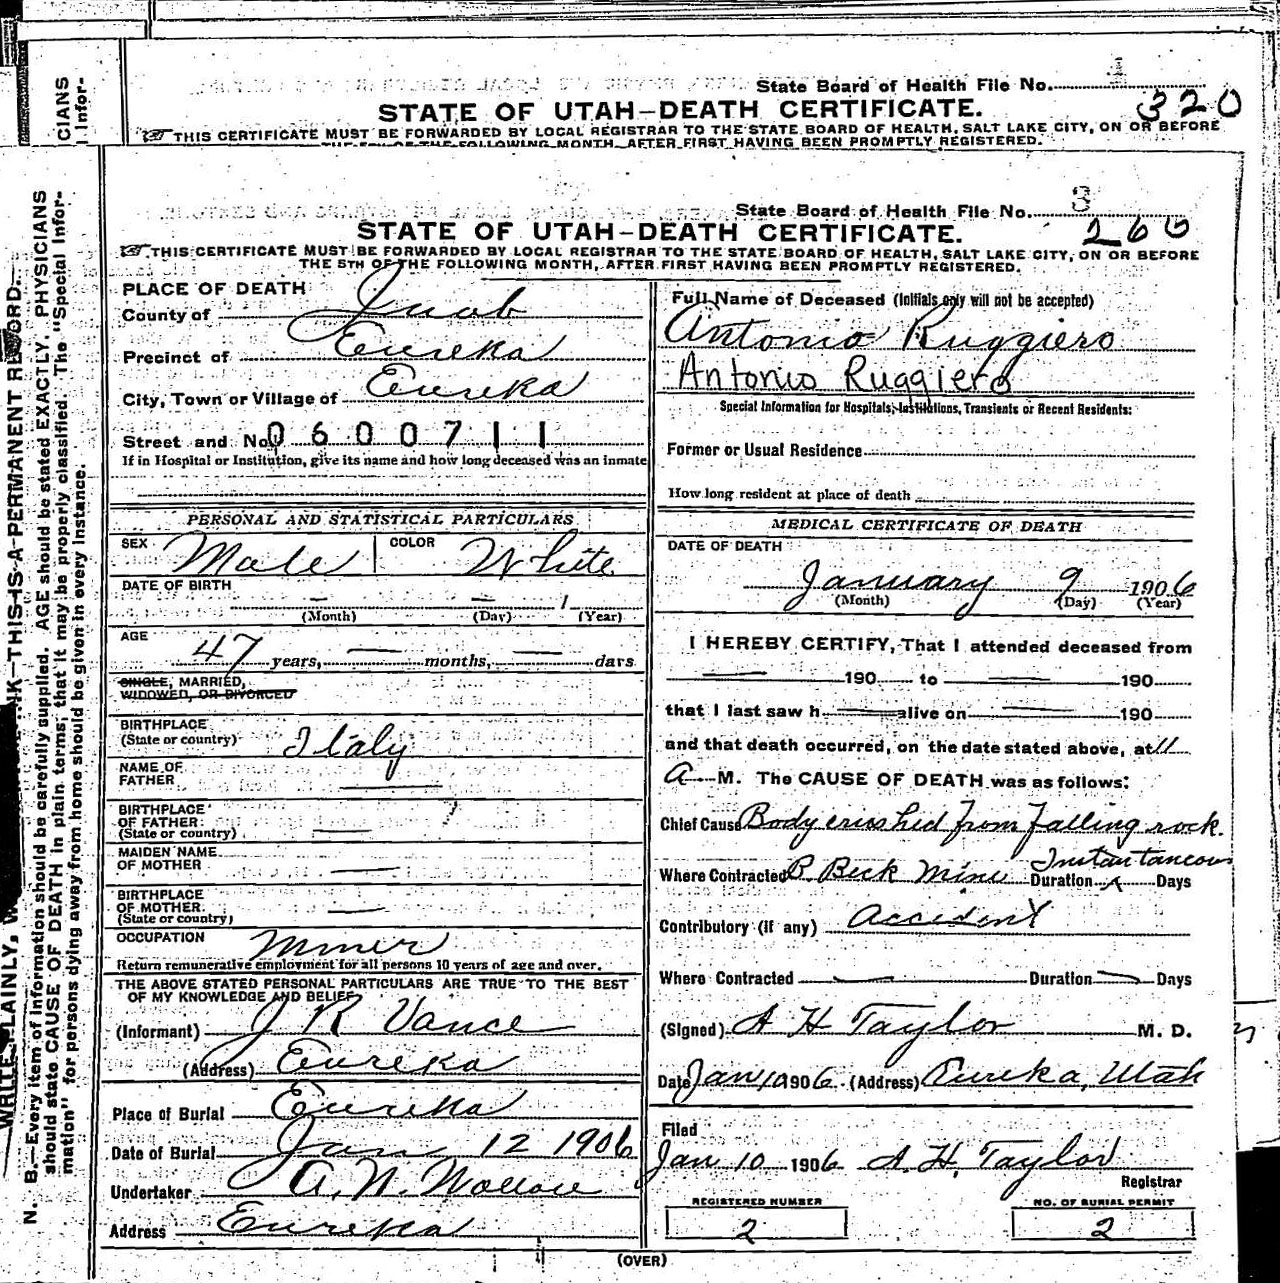 State Board of Health File No.
320
STATE OF UTAH—DEATH CERTIFICATE.
THIS CERTIFICATE MUST BE FORWARDED BY LOCAL REGISTRAR TO THE STATE BOARD OF HEALTH, SALT LAKE CITY, ON OR BEFORE
THE 5TH OF THE FOLLOWING MONTH, AFTER FIRST HAVING BEEN PROMPTLY REGISTERED.
CIANS
Infor-
State Board of Health File No. 3
260
STATE OF UTAH—DEATH CERTIFICATE.
THIS CERTIFICATE MUST BE FORWARDED BY LOCAL REGISTRAR TO THE STATE BOARD OF HEALTH, SALT LAKE CITY, ON OR BEFORE
THE 5TH OF THE FOLLOWING MONTH, AFTER FIRST HAVING BEEN PROMPTLY REGISTERED.
PLACE OF DEATH
County of Juab
Precinct of Eureka
City, Town or Village of Eureka
Street and No. 0600711
If in Hospital or Institution, give its name and how long deceased was an inmate
PERSONAL AND STATISTICAL PARTICULARS
SEX Male COLOR White
DATE OF BIRTH
— — 1
(Month) (Day) (Year)
AGE
47 years, — months, — days
SINGLE, MARRIED,
WIDOWED, OR DIVORCED
BIRTHPLACE
(State or country) Italy
NAME OF
FATHER —
BIRTHPLACE
OF FATHER
(State or country) —
MAIDEN NAME
OF MOTHER —
BIRTHPLACE
OF MOTHER
(State or country) —
OCCUPATION Miner
Return remunerative employment for all persons 10 years of age and over.
THE ABOVE STATED PERSONAL PARTICULARS ARE TRUE TO THE BEST
OF MY KNOWLEDGE AND BELIEF
(Informant) J R Vance
(Address) Eureka
Place of Burial Eureka
Date of Burial Jan 12 1906
Undertaker A. N.
Address Eureka
Full Name of Deceased (Initials only will not be accepted)
Antonio Ruggiero
Antonio Ruggiero
Special Information for Hospitals, Institutions, Transients or Recent Residents:
Former or Usual Residence
How long resident at place of death
MEDICAL CERTIFICATE OF DEATH
DATE OF DEATH
January 9 1906
(Month) (Day) (Year)
I HEREBY CERTIFY, That I attended deceased from
— 190 to — 190
that I last saw h — alive on — 190
and that death occurred, on the date stated above, at 11
A M. The CAUSE OF DEATH was as follows:
Chief Cause Body crushed from falling rock.
Instantaneous
Where Contracted B. Beck Mine Duration x Days
Contributory (if any) Accident
Where Contracted — Duration — Days
(Signed) A H Taylor M. D.
Date Jan 10 1906 (Address) Eureka, Utah
Filed
Jan 10 1906 A. H. Taylor
Registrar
REGISTERED NUMBER
2
NO. OF BURIAL PERMIT
2
(OVER)
WRITE PLAINLY, INK—THIS IS A PERMANENT RECORD.
N. B.—Every item of information should be carefully supplied. AGE should be stated EXACTLY. PHYSICIANS
should state CAUSE OF DEATH in plain terms, that it may be properly classified. The "Special Infor-
mation" for persons dying away from home should be given in every instance.